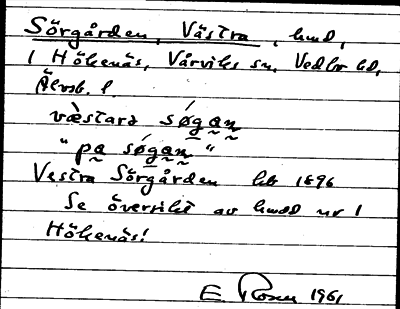 Sörgården, Västra, hmd,
i Hökenäs, Vårviks sn, Vedbo hd,
Älvsb. l.
væ̀stara søgan
"pa søgan"
Vestra Sörgården hb 1896
Se översikt av hmdd nr 1
Hökenäs!
E. Rosen 1961